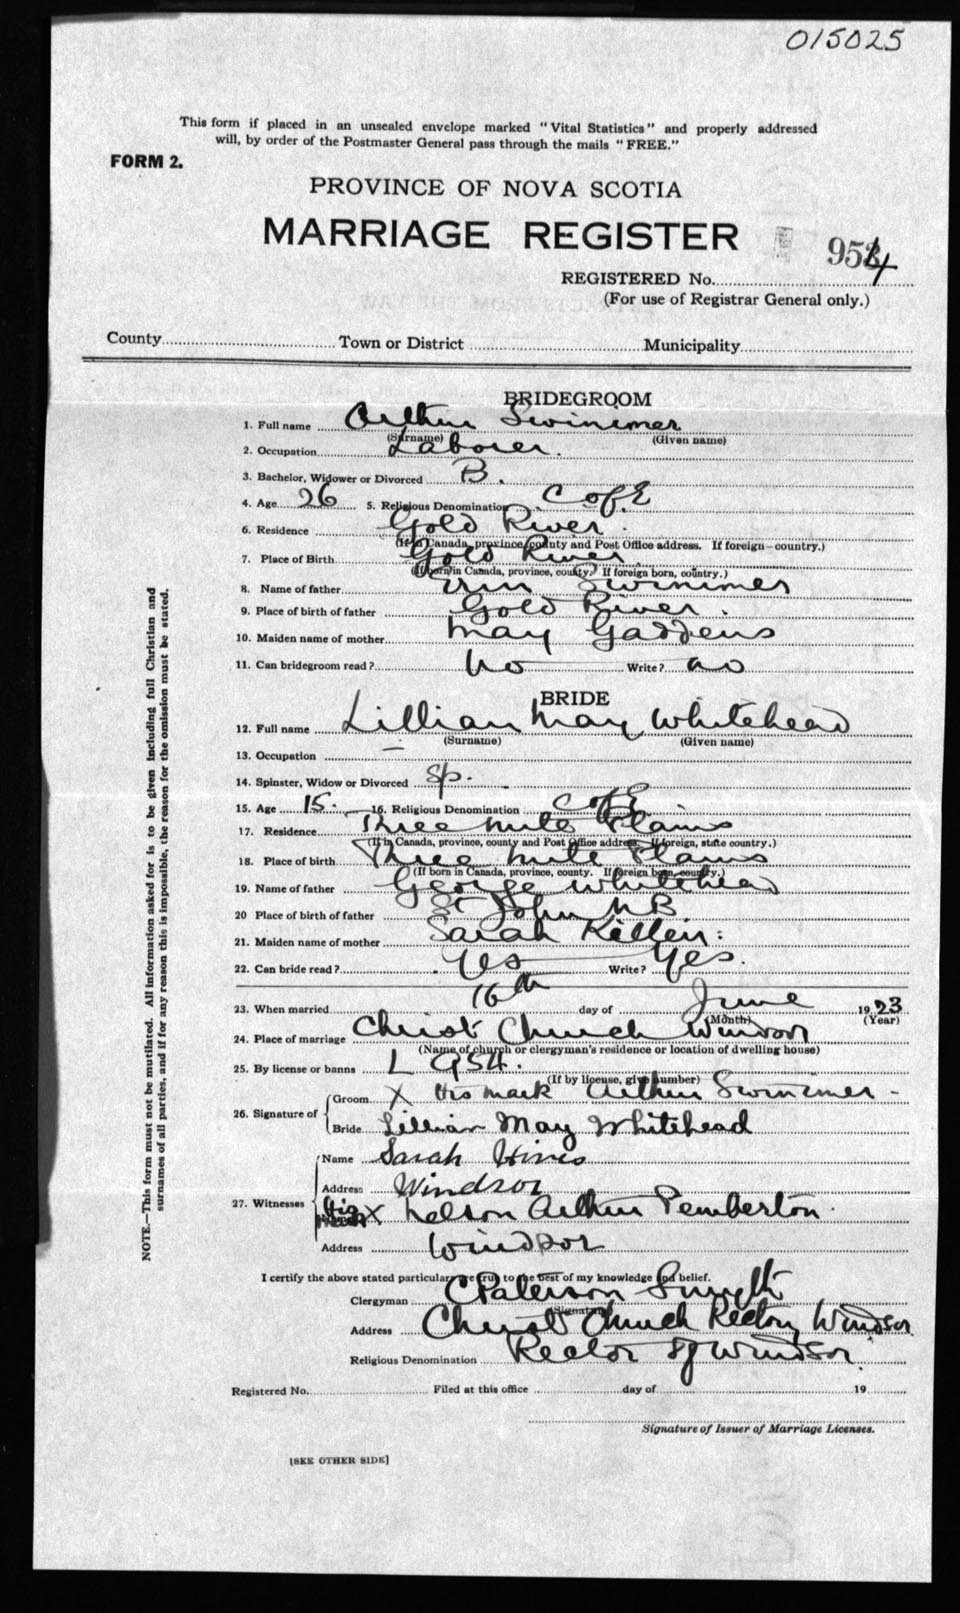 015025
This form if placed in an unsealed envelope marked "Vital Statistics" and properly addressed
will, by order of the Postmaster General pass through the mails "FREE."
FORM 2.
PROVINCE OF NOVA SCOTIA
MARRIAGE REGISTER
954
REGISTERED No.
(For use of Registrar General only.)
County Town or District Municipality
BRIDEGROOM
1. Full name Arthur Swinimer
(Surname) (Given name)
2. Occupation Laborer.
3. Bachelor, Widower or Divorced B.
4. Age 26 5. Religious Denomination C of E
6. Residence Gold River.
(If in Canada, province, county and Post Office address. If foreign—country.)
7. Place of Birth Gold River
(If born in Canada, province, county. If foreign born, country.)
8. Name of father Swinimer
9. Place of birth of father Gold River.
10. Maiden name of mother May Gaddens
11. Can bridegroom read? no Write? no
BRIDE
12. Full name Lillian May Whitehead
(Surname) (Given name)
13. Occupation —
14. Spinster, Widow or Divorced Sp.
15. Age 15. 16. Religious Denomination C of E
17. Residence Three Mile Plains
(If in Canada, province, county and Post Office address. If foreign, state country.)
18. Place of birth Three Mile Plains
(If born in Canada, province, county. If foreign born, country.)
19. Name of father George Whitehead
20 Place of birth of father St John NB
21. Maiden name of mother Sarah
22. Can bride read? Yes Write? Yes.
23. When married 16th day of June 1923
(Month) (Year)
24. Place of marriage Christ Church Windsor
(Name of church or clergyman's residence or location of dwelling house)
25. By license or banns L 954.
(If by license, give number)
26. Signature of Groom X His mark Arthur Swinimer
Bride Lillian May Whitehead
27. Witnesses Name Sarah Hines
Address Windsor
His mark X Nelson Arthur Pemberton.
Address Windsor
I certify the above stated particulars are true to the best of my knowledge and belief.
Clergyman C Paterson Smyth
(Signature)
Address Christ Church Rectory Windsor
Religious Denomination Rector of Windsor.
Registered No. Filed at this office day of 19
Signature of Issuer of Marriage Licenses.
[SEE OTHER SIDE]
NOTE.—This form must not be mutilated. All information asked for is to be given including full Christian and
surnames of all parties, and if for any reason this is impossible, the reason for the omission must be stated.